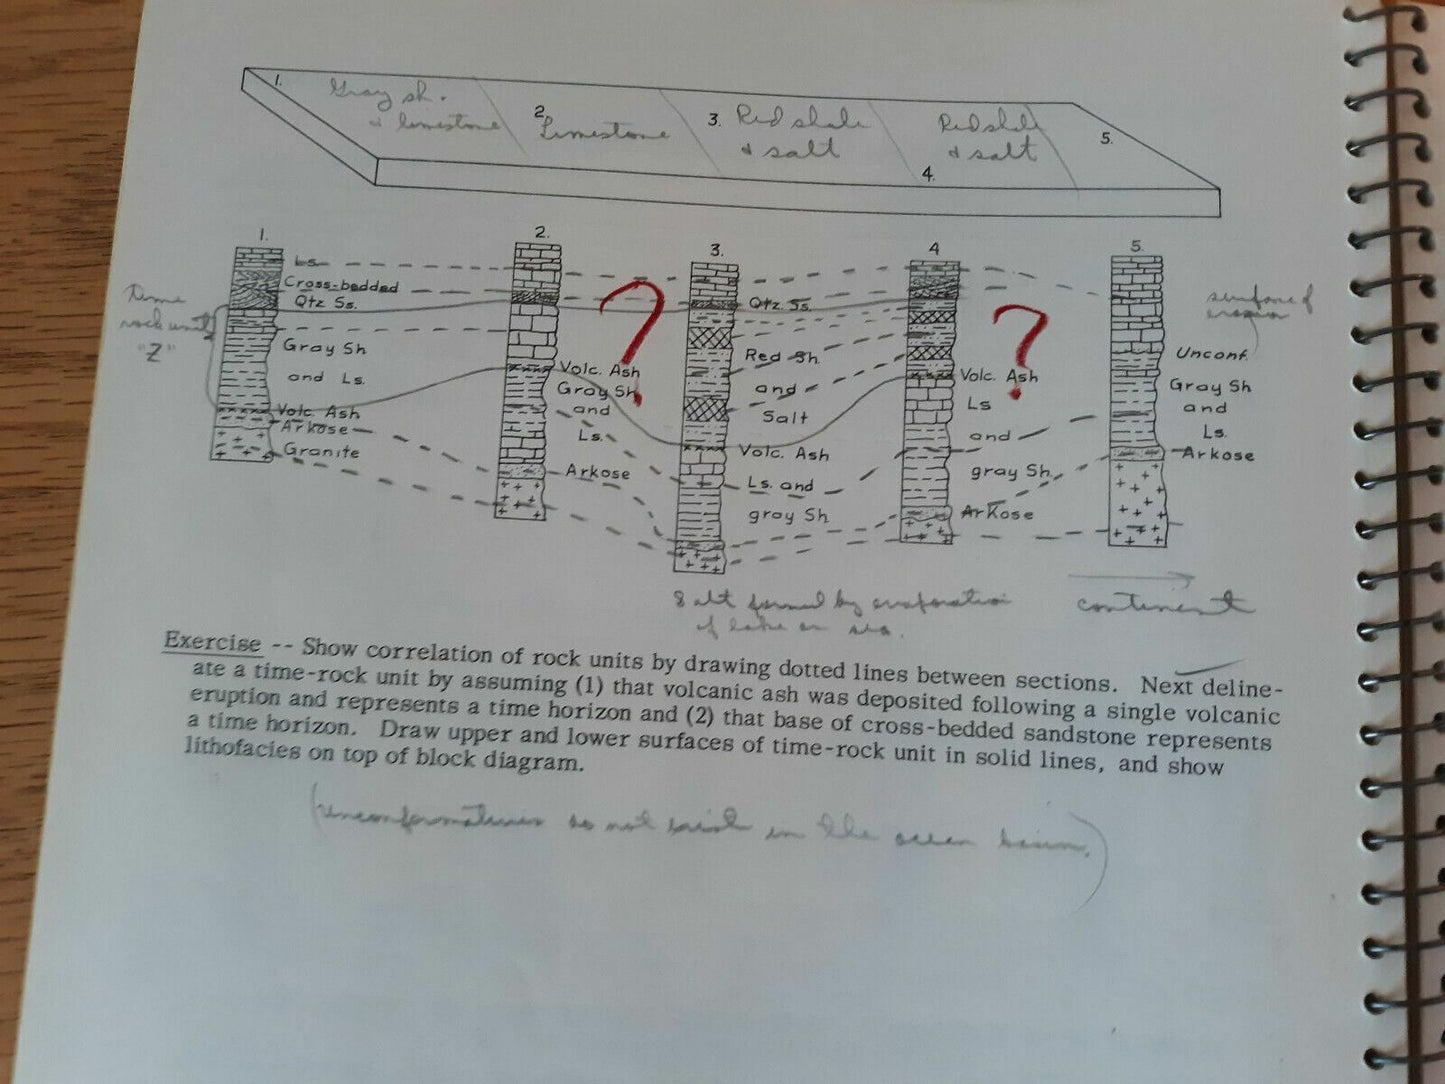 1.
Gray sh.
& limestone
2.
Limestone
3.
Red shale
& salt
Red shale
& salt
4.
5.
1.
2.
3.
4
5.
Ls.
Cross-bedded
Qtz Ss.
Gray Sh
and Ls.
Volc. Ash
Arkose
Granite
Time
rock unit
"Z"
?
Volc. Ash
Gray Sh
and
Ls.
Arkose
Qtz. Ss.
Red Sh.
and
Salt
Volc. Ash
Ls. and
gray Sh
?
Volc. Ash
Ls
and
gray Sh.
Arkose
surface of
erosion
Unconf.
Gray Sh
and
Ls.
Arkose
Salt formed by evaporation
of lake or sea.
continent
Exercise -- Show correlation of rock units by drawing dotted lines between sections. Next deline-
ate a time-rock unit by assuming (1) that volcanic ash was deposited following a single volcanic
eruption and represents a time horizon and (2) that base of cross-bedded sandstone represents
a time horizon. Draw upper and lower surfaces of time-rock unit in solid lines, and show
lithofacies on top of block diagram.
(unconformaties do not exist in the ocean basin.)